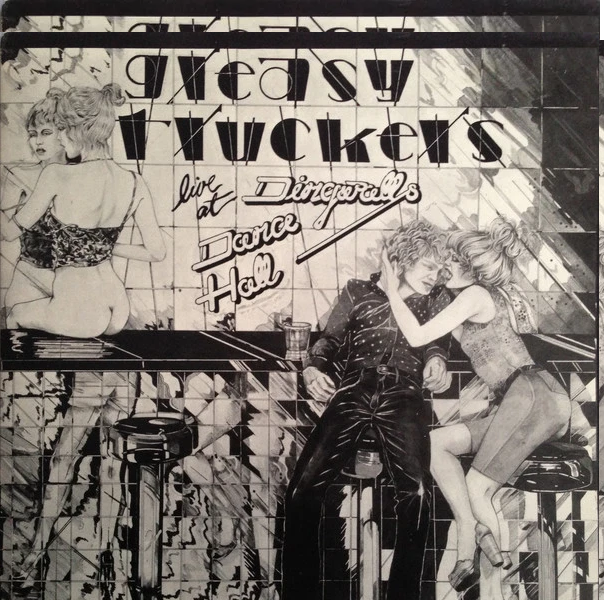 Greasy
Truckers
live at Dingwalls
Dance
Hall